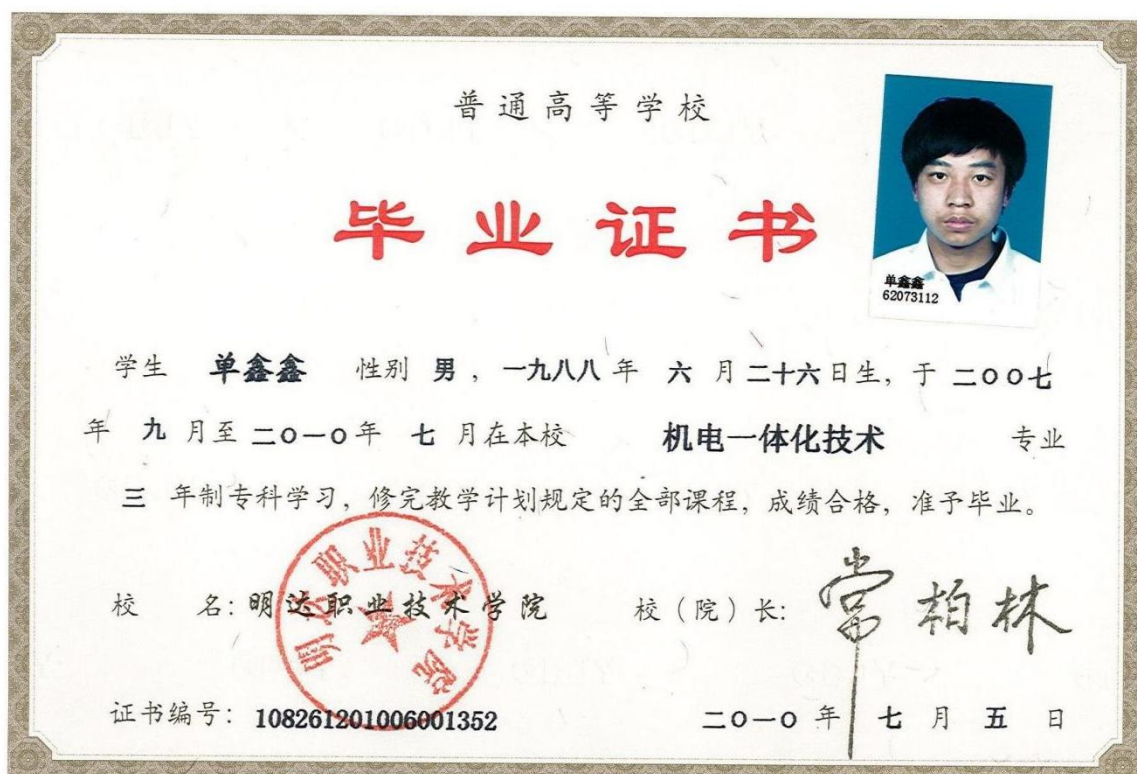 普通高等学校
毕业证书
单鑫鑫
62073112
学生 单鑫鑫 性别 男，一九八八年 六 月二十六日生，于 二〇〇七
年 九 月至二〇一〇年 七 月在本校 机电一体化技术 专业
三 年制专科学习，修完教学计划规定的全部课程，成绩合格，准予毕业。
明达职业技术学院
校 名：明达职业技术学院 校（院）长：常柏林
证书编号：108261201006001352 二〇一〇 年 七 月 五 日